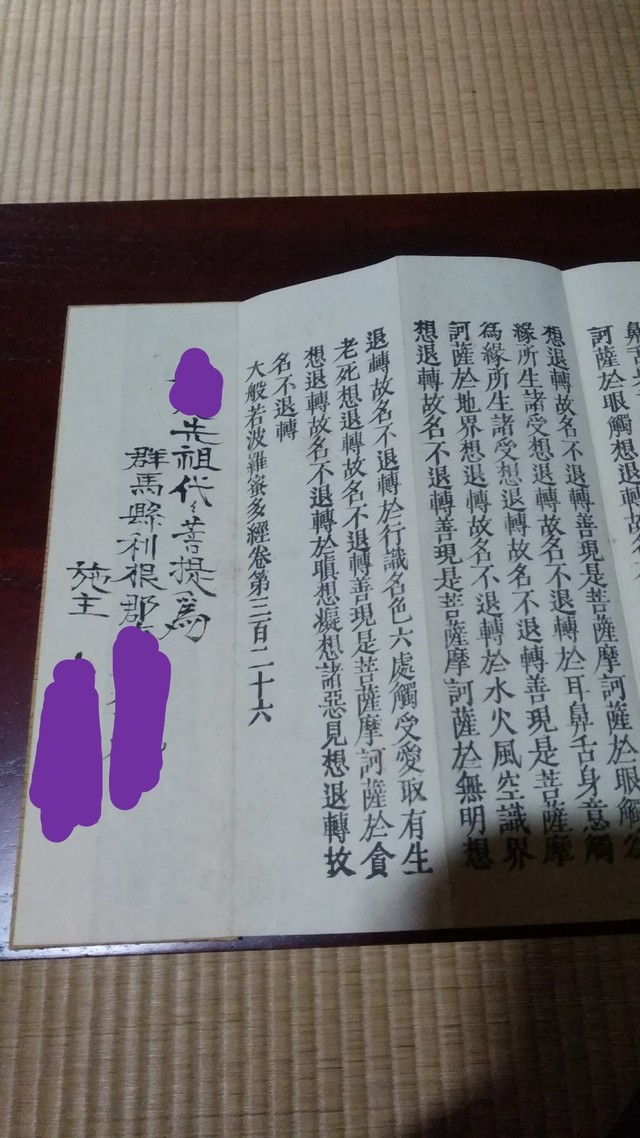 訶薩於眼觸想退轉故名
想退轉故名不退轉善現是菩薩摩訶薩於眼觸
緣所生諸受想退轉故名不退轉於耳鼻舌身意觸
爲緣所生諸受想退轉故名不退轉善現是菩薩摩
訶薩於地界想退轉故名不退轉於水火風空識界
想退轉故名不退轉善現是菩薩摩訶薩於無明想
退轉故名不退轉於行識名色六處觸受愛取有生
老死想退轉故名不退轉善現是菩薩摩訶薩於貪
想退轉故名不退轉於瞋想癡想諸惡見想退轉故
名不退轉
大般若波羅蜜多經卷第三百二十六
先祖代々菩提爲
群馬縣利根郡
施主